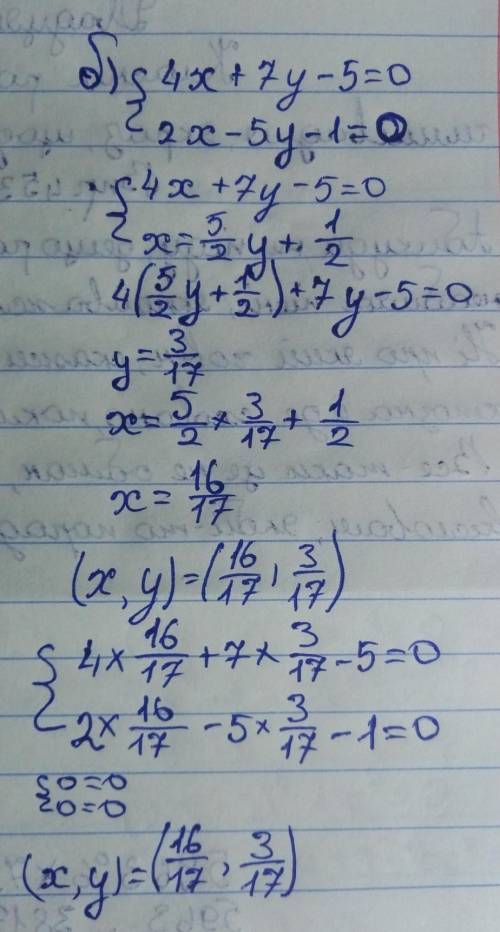 б) { 4x + 7y - 5 = 0
2x - 5y - 1 = 0
{ 4x + 7y - 5 = 0
x = 5/2 y + 1/2
4(5/2 y + 1/2) + 7y - 5 = 0
y = 3/17
x = 5/2 × 3/17 + 1/2
x = 16/17
(x, y) = (16/17, 3/17)
{ 4 × 16/17 + 7 × 3/17 - 5 = 0
2 × 16/17 - 5 × 3/17 - 1 = 0
{ 0 = 0
0 = 0
(x, y) = (16/17, 3/17)